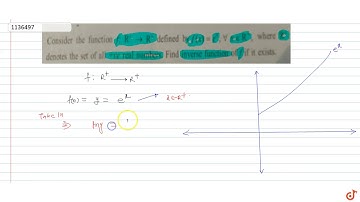 1136497
Consider the function f: R⁺ → R⁺ defined by f(x) = eˣ, ∀ x ∈ R⁺, where R⁺
denotes the set of all +ve real numbers. Find inverse function of f if it exists.
f: R⁺ → R⁺
f(x) = y = eˣ → x∈R⁺
Take ln
⇒ lny =
eˣ